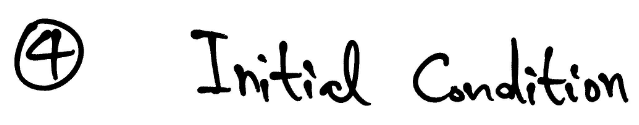 ④ Initial Condition